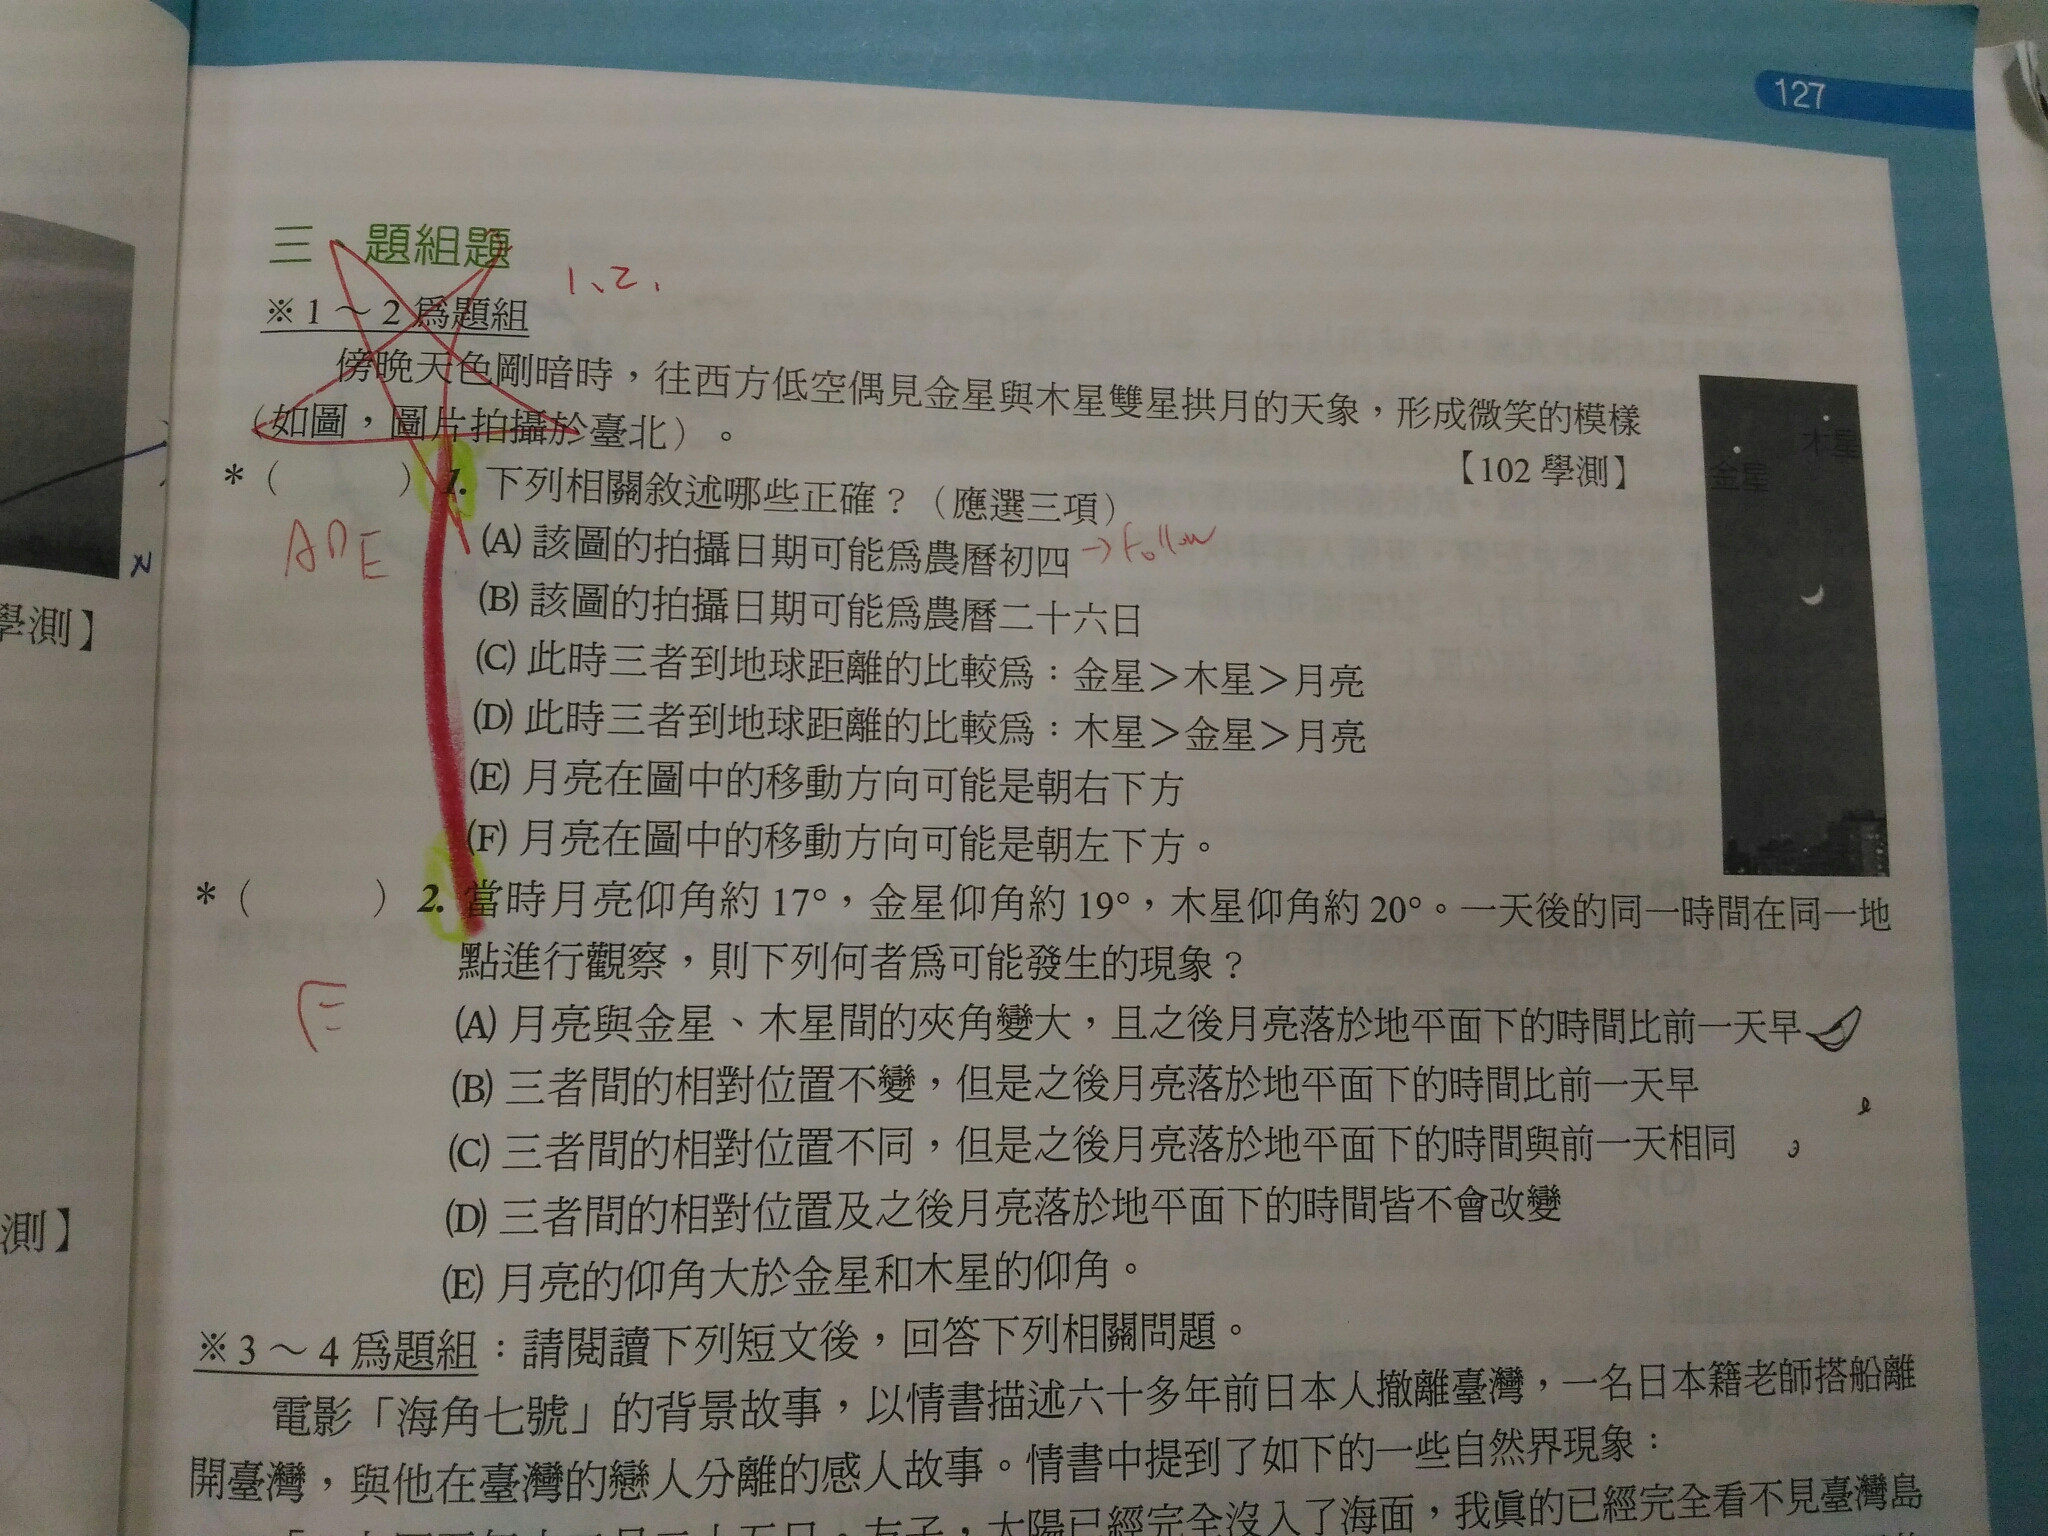 127
三、題組題
1、2.
※1～2爲題組
傍晚天色剛暗時，往西方低空偶見金星與木星雙星拱月的天象，形成微笑的模樣
（如圖，圖片拍攝於臺北）。
【102 學測】
木星
金星
＊（ ）1. 下列相關敘述哪些正確？（應選三項）
ADE
(A) 該圖的拍攝日期可能爲農曆初四 →Follow
(B) 該圖的拍攝日期可能爲農曆二十六日
(C) 此時三者到地球距離的比較爲：金星＞木星＞月亮
(D) 此時三者到地球距離的比較爲：木星＞金星＞月亮
(E) 月亮在圖中的移動方向可能是朝右下方
(F) 月亮在圖中的移動方向可能是朝左下方。
＊（ ）2. 當時月亮仰角約 17°，金星仰角約 19°，木星仰角約 20°。一天後的同一時間在同一地
點進行觀察，則下列何者爲可能發生的現象？
E
(A) 月亮與金星、木星間的夾角變大，且之後月亮落於地平面下的時間比前一天早
(B) 三者間的相對位置不變，但是之後月亮落於地平面下的時間比前一天早
(C) 三者間的相對位置不同，但是之後月亮落於地平面下的時間與前一天相同
(D) 三者間的相對位置及之後月亮落於地平面下的時間皆不會改變
(E) 月亮的仰角大於金星和木星的仰角。
※3～4爲題組：請閱讀下列短文後，回答下列相關問題。
電影「海角七號」的背景故事，以情書描述六十多年前日本人撤離臺灣，一名日本籍老師搭船離
開臺灣，與他在臺灣的戀人分離的感人故事。情書中提到了如下的一些自然界現象：
太陽已經完全沒入了海面，我眞的已經完全看不見臺灣島
學測】
測】